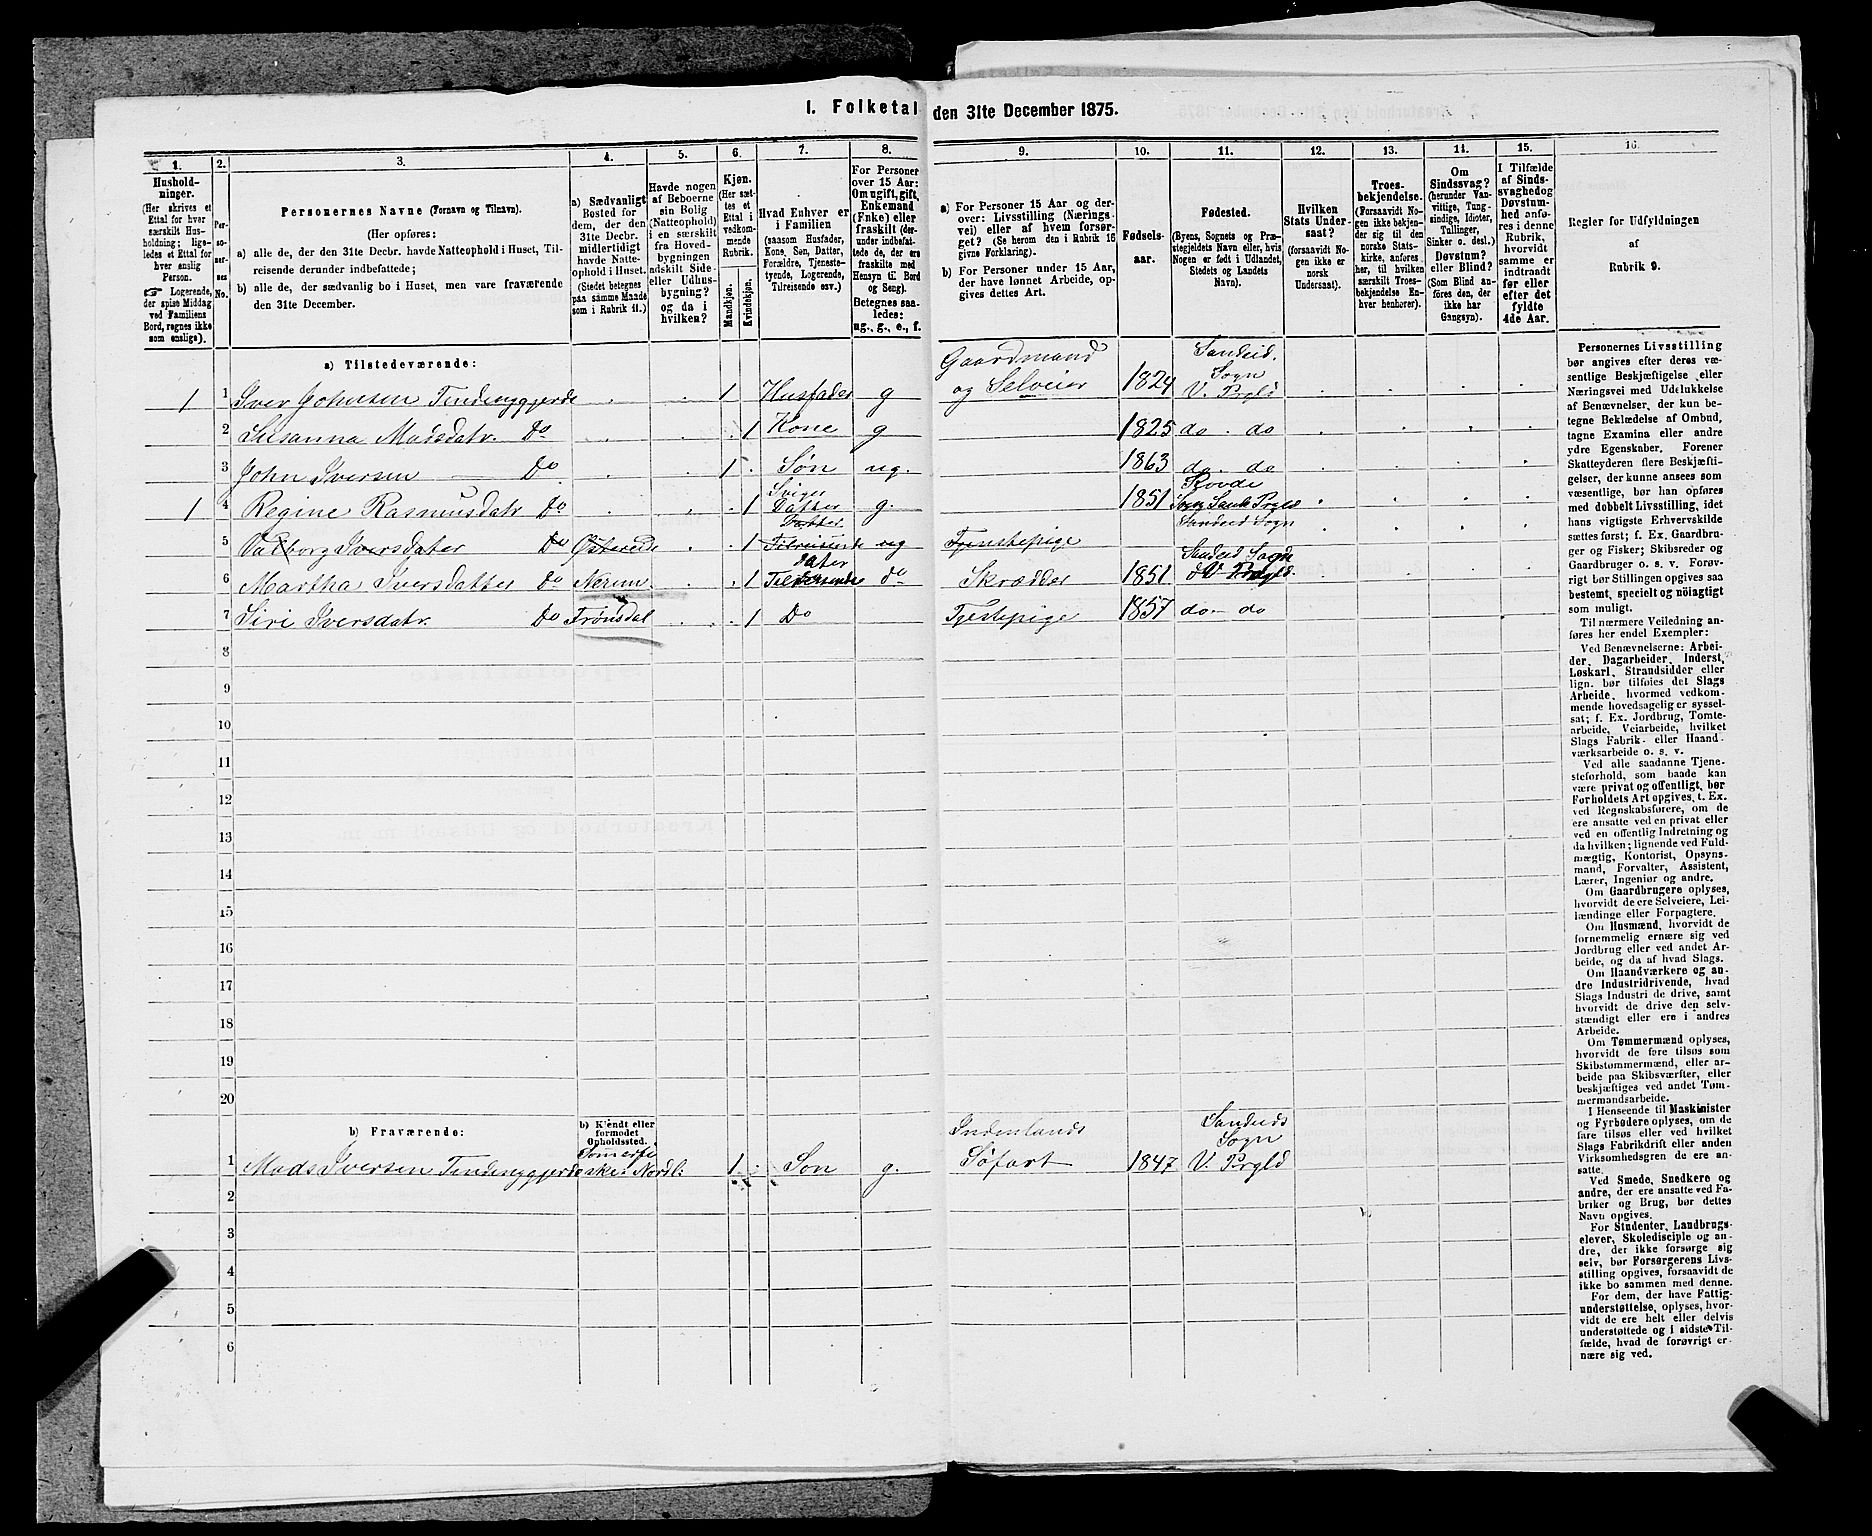 I. Folketal den 31te December 1875.
1. 2. 3. 4. 5. 6. 7. 8. 9. 10. 11. 12. 13. 14. 15. 16.
Hushold-
ninger.
(Her skrives et
Ettal for hver
særskilt Hus-
holdning; lige-
ledes et Ettal for
hver enslig
Person.
☞ Logerende,
der spise Middag
ved Familiens
Bord, regnes ikke
som enslige).
Per-
so-
ner-
nes
No.
Personernes Navne (Fornavn og Tilnavn).
(Her opføres:
a) alle de, der den 31te Decbr. havde Natteophold i Huset, Til-
reisende derunder indbefattede;
b) alle de, der sædvanlig bo i Huset, men vare fraværende
den 31te December.
a) Sædvanligt
Bosted for
dem, der den
31te Decbr.
midlertidigt
havde Natte-
ophold i Huset.
(Stedet betegnes
paa samme Maade
som i Rubrik 11.)
Havde nogen
af Beboerne
sin Bolig
(Natteophold)
i en særskilt
fra Hoved-
bygningen
adskilt Side-
eller Udhus-
bygning?
og da i
hvilken?
Kjøn.
(Her sæt-
tes et
Ettal i
vedkom-
mende
Rubrik.
Mandkjøn.
Kvindekjøn.
Hvad Enhver er
i Familien
(saasom Husfader,
Kone, Søn, Datter,
Forældre, Tjeneste-
tyende, Logerende,
Tilreisende osv.)
For Personer
over 15 Aar:
Om ugift, gift,
Enkemand
(Enke) eller
fraskilt (der-
under indbefat-
tede de, der ere
fraskilte med
Hensyn til Bord
og Seng).
Betegnes saa-
ledes:
ug., g., e., f.
a) For Personer 15 Aar og der-
over: Livsstilling (Nærings-
vei) eller af hvem forsør-
get? (Se herom den i Rubrik 16
givne Forklaring).
b) For Personer under 15 Aar,
der have lønnet Arbeide, op-
gives dettes Art.
Fødsels-
aar.
Fødested.
(Byens, Sognets og Præ-
stegjeldets Navn eller, hvis
Nogen er født i Udlandet,
Stedets og Landets
Navn).
Hvilken
Stats Under-
saat?
(forsaavidt No-
gen ikke er
norsk
Undersaat).
Troes-
bekjendelse.
(Forsaavidt No-
gen ikke bekjen-
der sig til den
norske Stats-
kirke, anføres
her, til hvilken
særskilt Troes-
bekjendelse En-
hver henhører).
Om
Sindssvag?
(herunder Van-
vittige, Tung-
sindige, Idioter,
Tullinger,
Sinker o. desl.)
Døvstum?
eller Blind?
(Som Blind an-
føres den, der
ikke har
Gangsyn).
I Tilfælde
af Sinds-
svaghed og
Døvstum-
hed anfø-
res i denne
Rubrik,
hvorvidt
samme er
indtraadt
før eller
efter det
fyldte
4de Aar.
Regler for Udfyldningen
af
Rubrik 9.
a) Tilstedeværende:
1 1 Iver Johnsen Tindenyggjerde 1 Husfader g Gaardmand og Selveier 1824 Sandeid. Sogn V. Prgld
2 Susanna Madsdatr. Do 1 Kone g 1825 do. do
3 John Iversen Do 1 Søn ug. 1863 do. do
1 4 Regine Rasmusdatr Do 1 Sviger Datter g. 1851 Skovde Sogn Prgld
5 Valborg Iversdater Do 1 Datter Tilreisende ug Tjenstepige Sandeid Sogn
6 Martha Iversdatter Do Nerim. 1 Dater Tilreisende do Skrædder 1851 Sandeid Sogn V Prgld.
7 Siri Iversdatr. Do Frønsdal 1 Do Tjestepige 1857 do- do
8
9
10
11
12
13
14
15
16
17
18
19
20
b) Fraværende:
b) Kjendt eller
formodet
Opholdssted.
1 Mads Iversen Tindenyggjerde Nordl: 1 Søn g. Indenlands Søfart 1847 Sandeids Sogn V. Prgld
2
3
4
5
6
Personernes Livsstilling
bør angives efter deres væ-
sentlige Beskjæftigelse eller
Næringsvei med Udelukkelse
af Benævnelser, der kun be-
tegne Beklædelse af Ombud,
tagne Examina eller andre
ydre Egenskaber. Forener
Skatteyderen flere Beskjæfti-
gelser, der kunne ansees som
væsentlige, bør han opføres
med dobbelt Livsstilling, idet
hans vigtigste Erhvervskilde
sættes først; f. Ex. Gaardbru-
ger og Fisker; Skibsreder og
Gaardbruger o. s. v. Forøv-
rigt bør Stillingen opgives saa
bestemt, specielt og nöiagtigt
som muligt.
Til nærmere Veiledning an-
føres her endel Exempler:
Ved Benævnelserne: Arbei-
der, Dagarbeider, Inderst,
Løskarl, Strandsidder eller
lign. bør tilføies det Slags
Arbeide, hvormed vedkom-
mende hovedsagelig er syssel-
sat; f. Ex. Jordbrug, Tomte-
arbeide, Veiarbeide, hvilket
Slags Fabrik- eller Haand-
værksarbeide o. s. v.
Ved alle saadanne Tjene-
steforhold, som baade kan
være privat og offentligt, bør
Forholdets Art opgives, t. Ex.
ved Regnskabsførere, om de
ere ansatte ved en privat eller
ved en offentlig Indretning og
da hvilken; lignende ved Fuld-
mægtig, Kontorist, Opsyns-
mand, Forvalter, Assistent,
Lærer, Ingeniør og andre.
Om Gaardbrugere oplyses,
hvorvidt de ere Selveiere, Lei-
lændinge eller Forpagtere.
Om Husmænd, hvorvidt de
fornemmelig ernære sig ved
Jordbrug eller ved andet Ar-
beide, og da af hvad Slags.
Om Haandværkere og an-
dre Industridrivende, hvad
Slags Industri de drive, samt
hvorvidt de drive den selv-
stændigt eller ere i andres
Arbeide.
Om Tømmermænd oplyses,
hvorvidt de fare tilsøs som
Skibstømmermænd, eller ar-
beide paa Skibsværfter, eller
beskjæftiges ved andet Tøm-
mermandsarbeide.
I Henseende til Maskinister
og Fyrbødere oplyses, om de
fare tilsøs eller ved hvilket
Slags Fabrikdrift eller anden
Virksomhedsgren de ere an-
satte.
Ved Smede, Snedkere og
andre, der ere ansatte ved Fa-
briker og Brug, bør dettes
Navn opgives.
For Studenter, Landbrugs-
elever, Skoledisciple og an-
dre, der ikke forsørge sig
selv, bør Forsørgerens Livs-
stilling opgives, forsaavidt de
ikke bo sammen med denne.
For dem, der have Fattig-
understøttelse, oplyses, hvor-
vidt de ere helt eller delvis
understøttede og i sidste Til-
fælde, hvad de forøvrigt er-
nære sig ved.